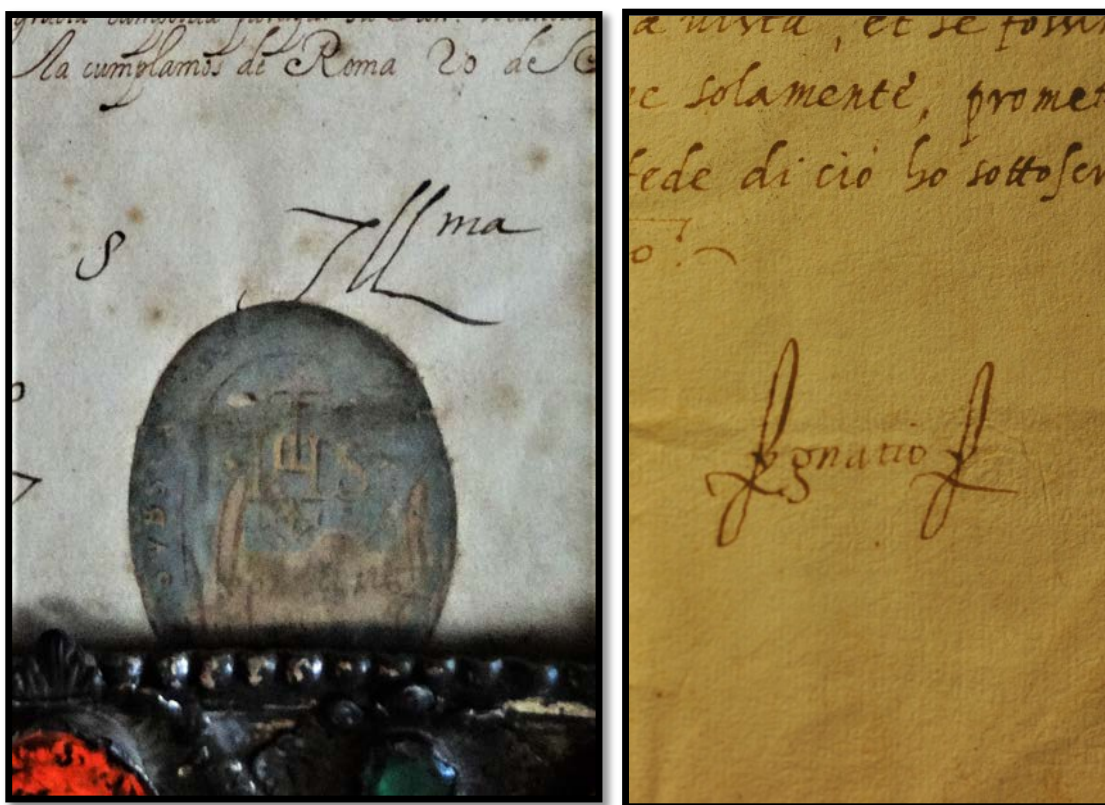 la cumplamos de Roma 20 de
S Illma
IHS
a vista, et se
solamente, promet
fede di ciò ho sottoscr
Ignatio